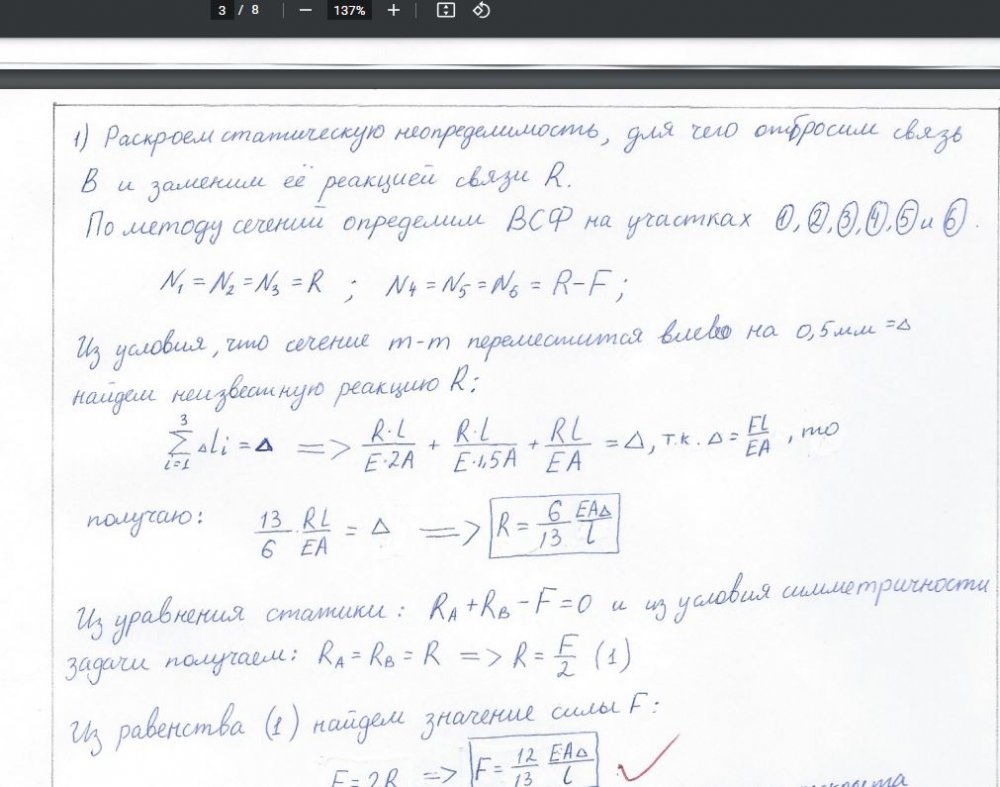 3 / 8 − 137% +
1) Раскроем статическую неопределимость, для чего отбросим связь
В и заменим её реакцией связи R.
По методу сечений определим ВСФ на участках ①, ②, ③, ④, ⑤ и ⑥.
N₁ = N₂ = N₃ = R ; N₄ = N₅ = N₆ = R−F ;
Из условия, что сечение m-m переместится влево на 0,5мм = Δ
найдем неизвестную реакцию R:
∑_{i=1}^{3} Δli = Δ => R·L/E·2A + R·L/E·1,5A + RL/EA = Δ, т.к. Δ = FL/EA, то
получаю: 13/6 · RL/EA = Δ => R = 6/13 EAΔ/l
Из уравнения статики: R_A + R_B − F = 0 и из условия симметричности
задачи получаем: R_A = R_B = R => R = F/2 (1)
Из равенства (1) найдем значение силы F:
F = 2R => F = 12/13 EAΔ/l